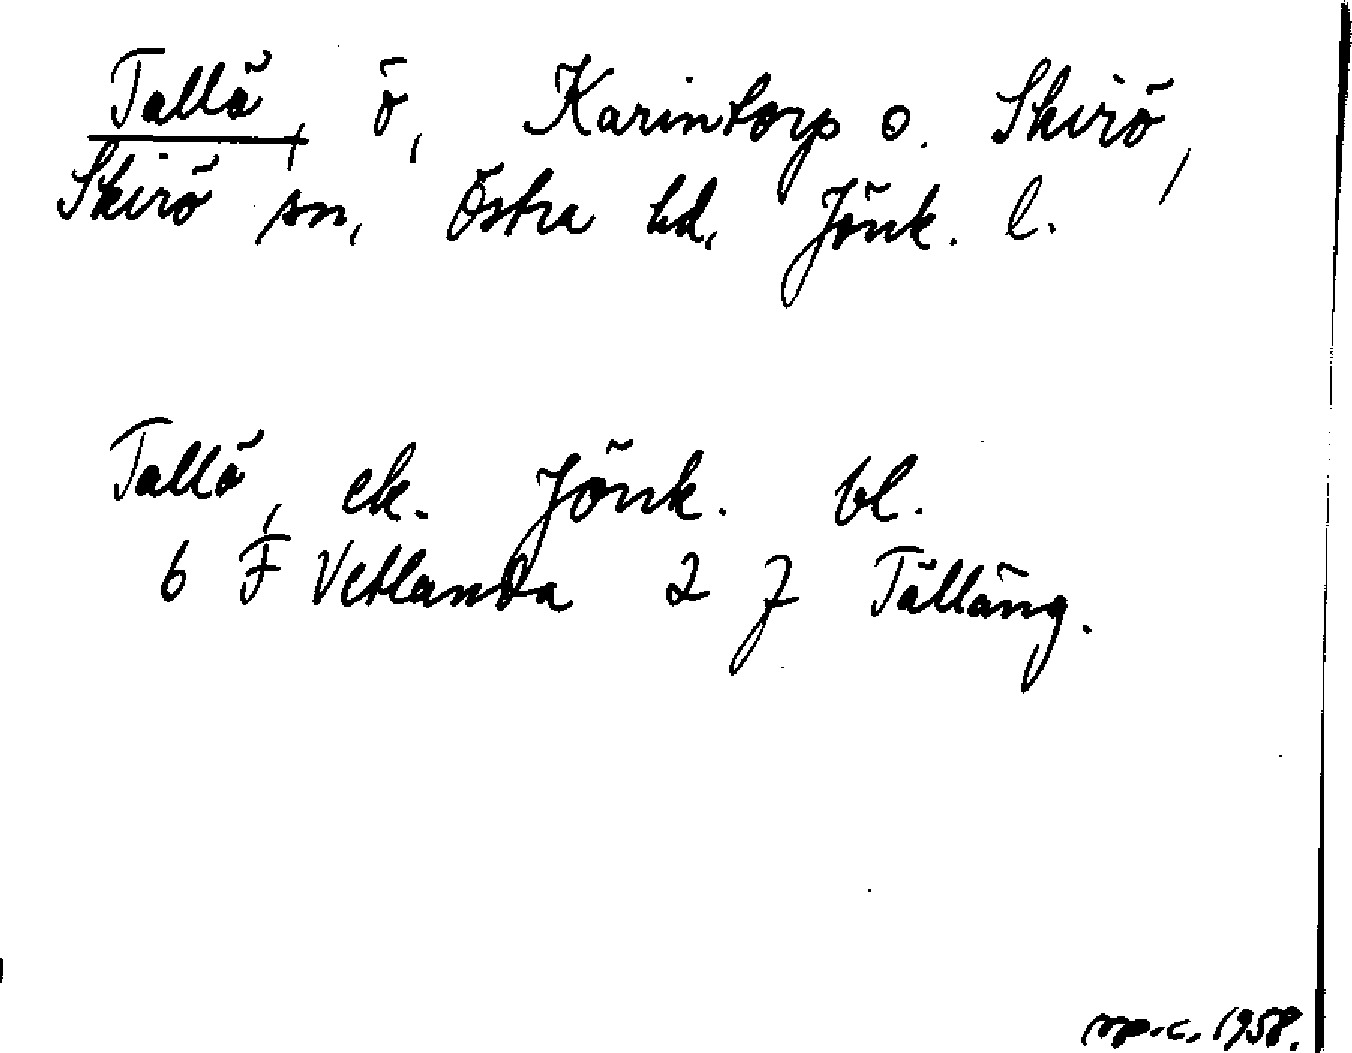 Tallö, ö, Karintorp o. Skirö,
Skirö sn, Östra hd, Jönk. l.
Tallö, ek. Jönk. bl.
6 F Vetlanda 2 J Tälläng.
1958.